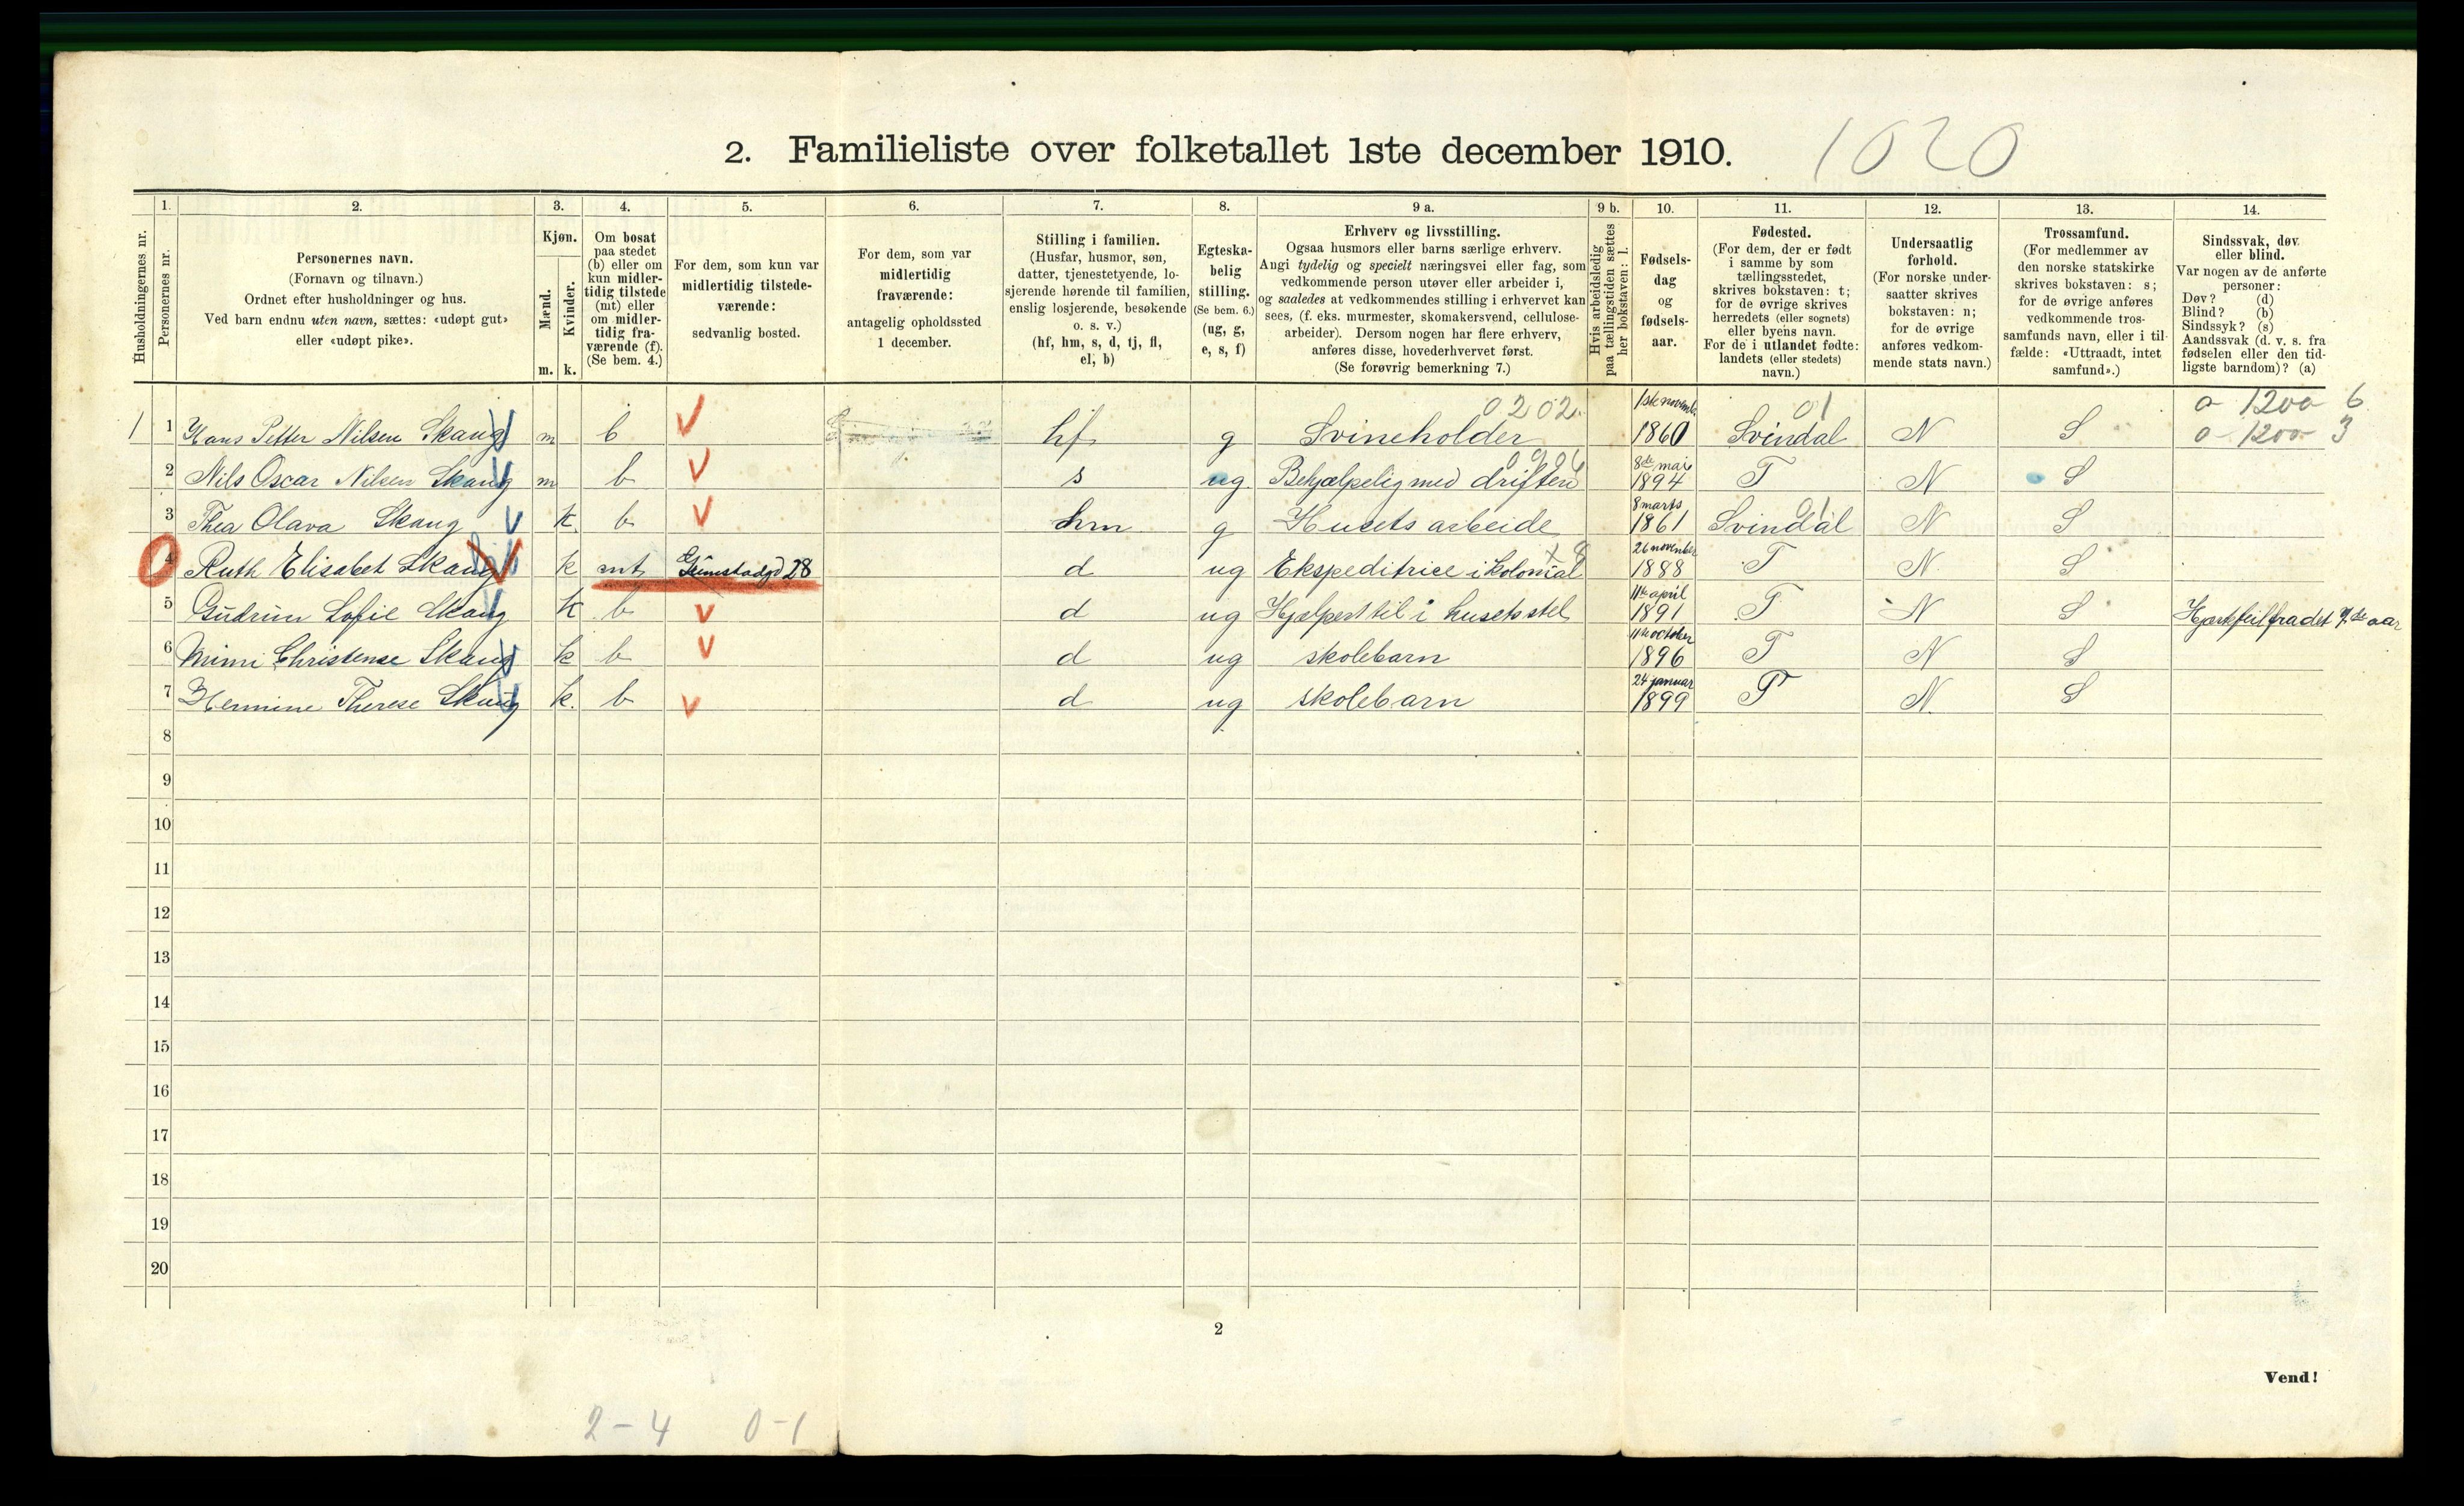 2. Familieliste over folketallet 1ste december 1910.
1020
Husholdningernes nr.
1.
Personernes nr.
2.
Personernes navn.
(Fornavn og tilnavn.)
Ordnet efter husholdninger og hus.
Ved barn endnu uten navn, sættes: «udøpt gut»
eller «udøpt pike».
3.
Kjøn.
Mænd.
Kvinder.
m. k.
4.
Om bosat
paa stedet
(b) eller om
kun midler-
tidig tilstede
(mt) eller
om midler-
tidig fra-
værende (f).
(Se bem. 4.)
5.
For dem, som kun var
midlertidig tilstede-
værende:
sedvanlig bosted.
6.
For dem, som var
midlertidig
fraværende:
antagelig opholdssted
1 december.
7.
Stilling i familien.
(Husfar, husmor, søn,
datter, tjenestetyende, lo-
sjerende hørende til familien,
enslig losjerende, besøkende
o. s. v.)
(hf, hm, s, d, tj, fl,
el, b)
8.
Egteska-
belig
stilling.
(Se bem. 6.)
(ug, g,
e, s, f)
9 a.
Erhverv og livsstilling.
Ogsaa husmors eller barns særlige erhverv.
Angi tydelig og specielt næringsvei eller fag, som
vedkommende person utøver eller arbeider i,
og saaledes at vedkommendes stilling i erhvervet kan
sees, (f. eks. murmester, skomakersvend, cellulose-
arbeider). Dersom nogen har flere erhverv,
anføres disse, hovederhvervet først.
(Se forøvrig bemerkning 7.)
9 b.
Hvis arbeidsledig
paa tællingstiden sættes
her bokstaven: l.
10.
Fødsels-
dag
og
fødsels-
aar.
11.
Fødested.
(For dem, der er født
i samme by som
tællingsstedet,
skrives bokstaven: t;
for de øvrige skrives
herredets (eller sognets)
eller byens navn.
For de i utlandet fødte:
landets (eller stedets)
navn.)
12.
Undersaatlig
forhold.
(For norske under-
saatter skrives
bokstaven: n;
for de øvrige
anføres vedkom-
mende stats navn.)
13.
Trossamfund.
(For medlemmer av
den norske statskirke
skrives bokstaven: s;
for de øvrige anføres
vedkommende tros-
samfunds navn, eller i til-
fælde: «Uttraadt, intet
samfund».)
14.
Sindssvak, døv
eller blind.
Var nogen av de anførte
personer:
Døv? (d)
Blind? (b)
Sindssyk? (s)
Aandssvak (d. v. s. fra
fødselen eller den tid-
ligste barndom)? (a)
0202. 1ste novemb. 01 0-1200-6
1 1 Hans Petter Nilsen Skaug m b hf g Svineholder 1860 Svindal N S 0-1200-3
8de mai
2 Nils Oscar Nilsen Skaug m b s ug Behjælpelig med driften 1894 T N S
8 marts 01
3 Thea Olava Skaug k. b hm g Husets arbeide 1861 Svindal N S
x 8 26 november
4 Ruth Elisabet Skaug k mt 28 d ug Ekspeditrice i kolonial 1888 T N. S
11te april
5 Gudrun Sofie Skaug k b d ug Hjælper til i husets stel 1891 T N S Hjertfeil fra det aar
11te october
6 Mimi Christense Skaug k b d ug skolebarn 1896 T N S
24 januar
7 Hermine Therese Skaug k. b d ug skolebarn 1899 T N. S
8
9
10
11
12
13
14
15
16
17
18
19
20
2
Vend!
2-4 0-1